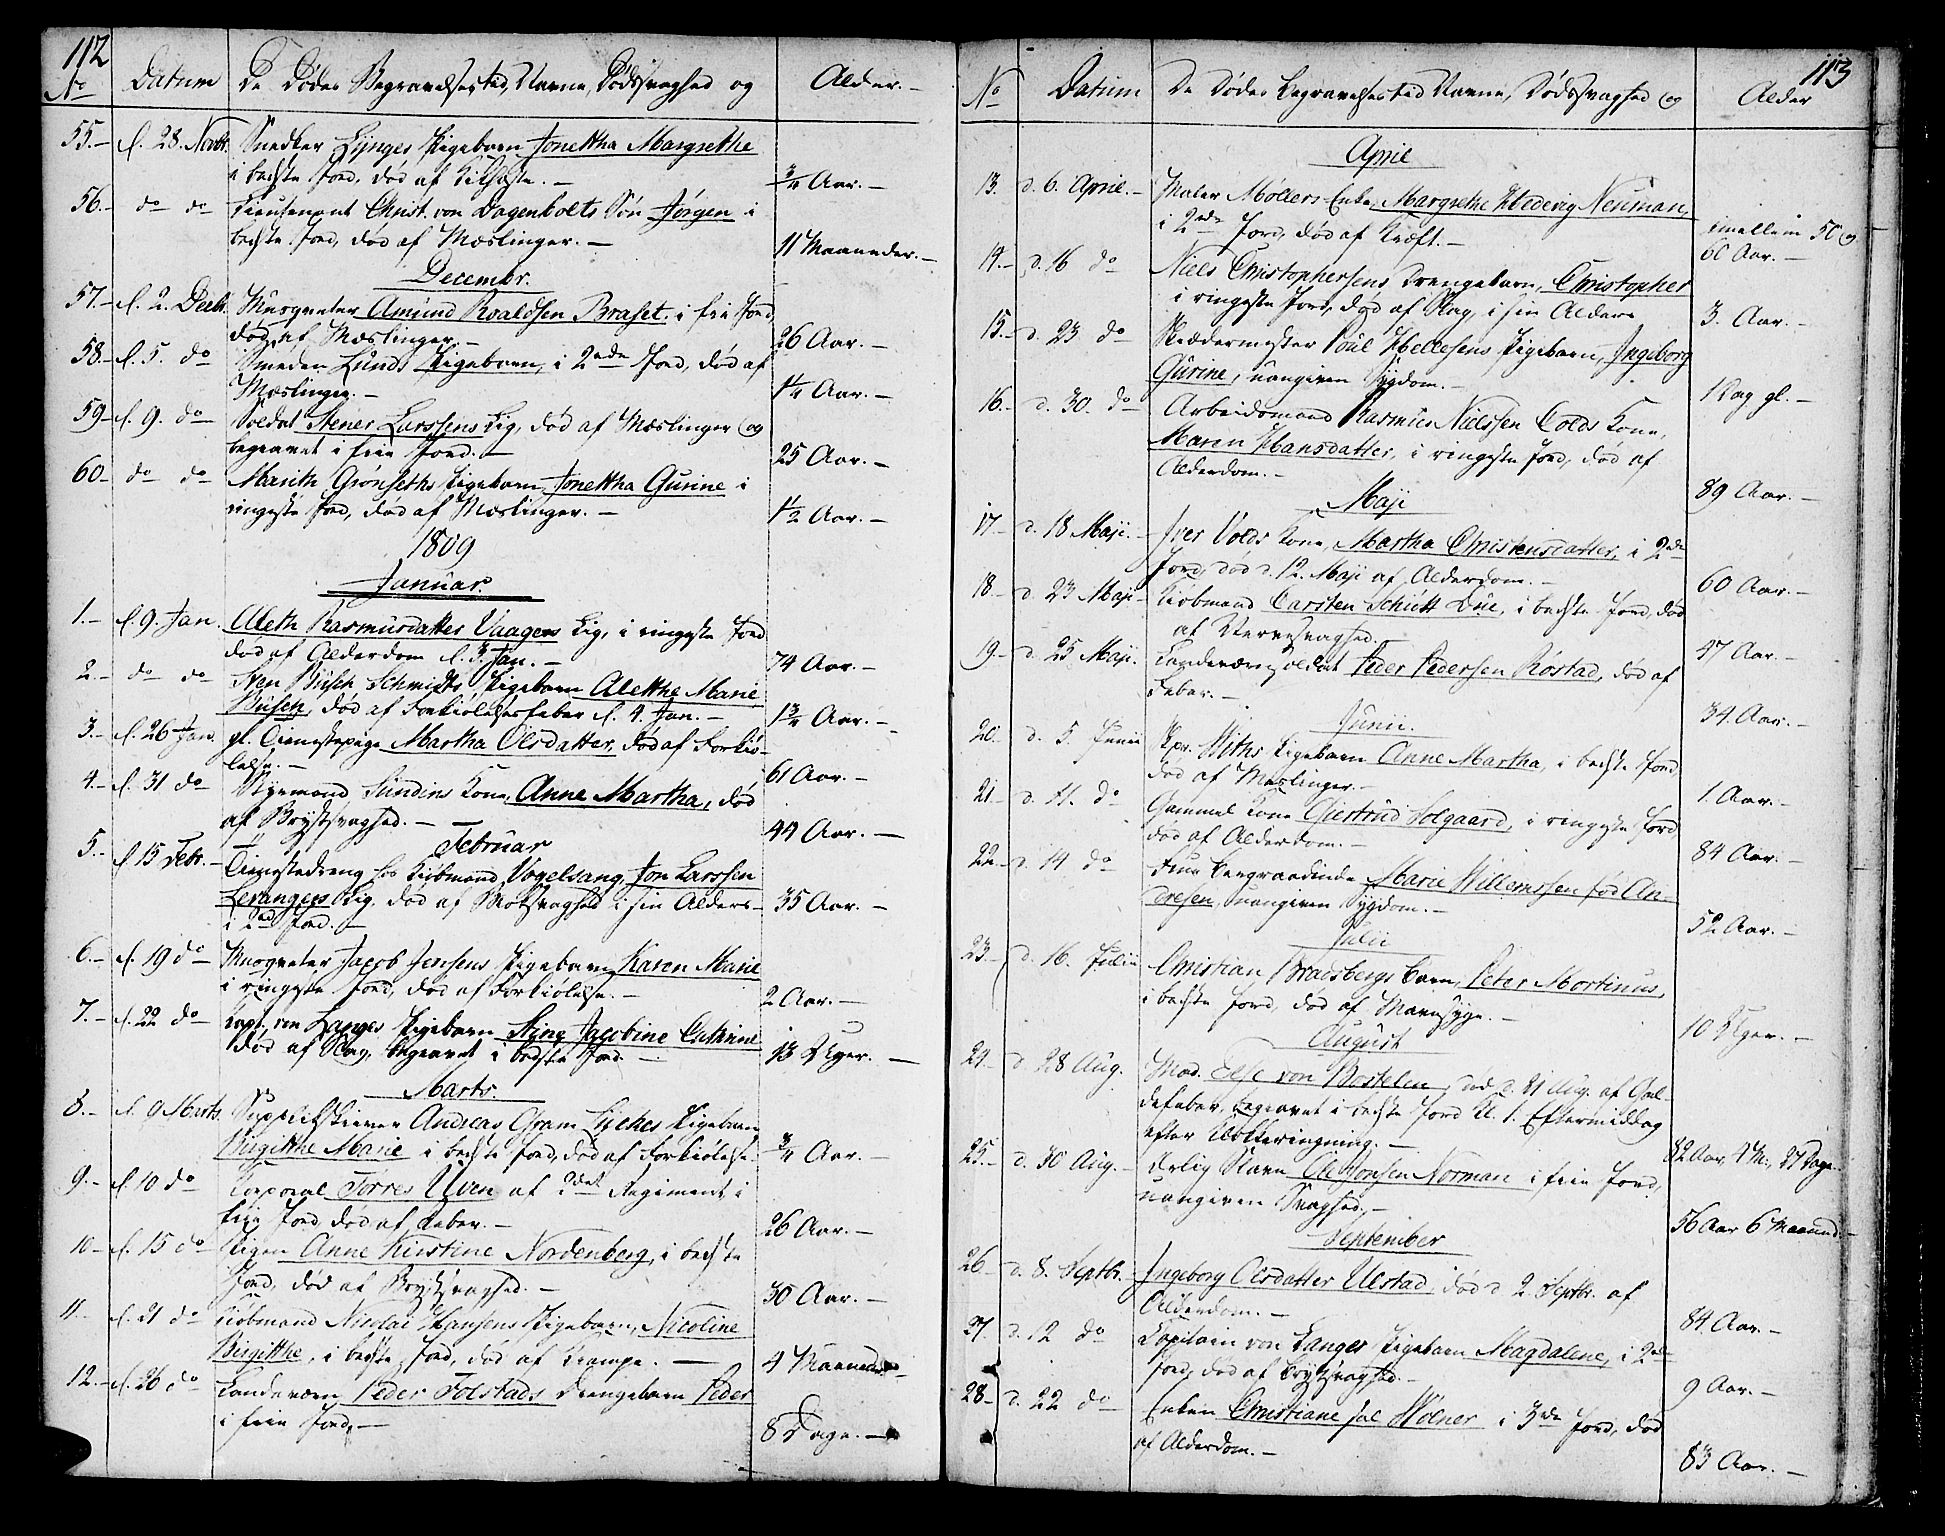 112
No Datum De Dödes Begravelsested, Navne, Dödssvaghed og Alder.-
55.- d. 28. Novbr. Snedker Lynges Pigebarn Jonettha Margrethe
i bedste Jord, død af Kikhoste. - 3/4 Aar.-
56.- do do Lieutenant Christ. von Dagenbolts Søn Jörgen i
bedste Jord, død af Mæslinger. - 11 Maaneder.-
Decembr.
57.- d. 2. Decbr. Musqueter Amund Roaldsen Braset i frie Jord,
død af Mæslinger.- 26 Aar.-
58.- d. 5. do Smeden Lunds Pigebarn, i 2den Jord, død af
Mæslinger.- 1/4 Aar.-
59- d. 9. do Soldat Stener Larssens Lig, død af Mæslinger og
begravet i frie Jord.- 25 Aar.-
60- do do Marith Grönseths Pigebarn Jonettha Gurine i
ringeste Jord, død af Mæslinger.- 1/2 Aar.-
1809
Januar.
1.- d. 9. Jan. Aleth Rasmusdatter Vaagens Lig, i ringeste Jord
død af Alderdom d. 3 Jan.- 74 Aar.-
2.- do do Busch Schmidts Pigebarn Aletthe Marie
Busch, død af Forkiölelsesfeber d. 4. Jan.- 1 3/4 Aar.-
3.- d. 26 Jan. gl. Tienestepige Martha Olsdatter, død af Forkiö-
lelse.- 61 Aar.-
4.- d. 31 do Byemand Sundins Kone, Anne Martha, død
af Brystsvaghed.- 44 Aar.-
Februar
5.- d. 15 Febr.- Tienestedreng hos Kiöbmand Vogelsang, Jon Larssen
Levangers Lig, død af Svaghed i sin Alders-
i 2den Jord.- 35 Aar.-
6.- d. 19 do- Musqueter Jacob Jensens Pigebarn Karen Marie
i ringeste Jord, død af Forkiölelse.- 2 Aar.-
7.- d. 22 do- Capt. von Langes Pigebarn Stine Jacobine Cathrine
død af Slag, begravet i bedste Jord.- 13 Uger.-
Marts.
8.- d. 9 Marts. Andreas Gram Lyches Pigebarn
Birgitthe Marie i bedste Jord, død af Forkiölelse. 3/4 Aar.-
9.- d. 10 do Corporal Torres Uven af 2det Regiment i
frie Jord, død af Feber.- 26 Aar.-
10- d. 15 do- Pigen Anne Kirstine Nordenberg, i bedste
Jord, død af Brystsvaghed.- 30 Aar.-
11.- d. 21 do Kiöbmand Nicolai Hansens Pigebarn, Nicoline
Birgitthe, i bedste Jord, død af Krampe.- 4 Maaneder-
12.- d. 26 do- Landeværn Peder Tolstads Drengebarn Peder
i frie Jord,- 8 Dage.-
113
No Datum De Dödes Begravelsested Navne, Dödssvaghed og Alder
April
13. d. 6. April.- Maler Møllers Enke, Margrethe Hedevig Neuman,
i 2den Jord, død af Kræft.- imellem 50 og
60 Aar.-
14.- d. 16 do Niels Christophersens Drengebarn, Christopher
i ringeste Jord, død af Slag, i sin Alders 3. Aar.-
15.- d. 23 do Skrædermester Poul Hellesens Pigebarn, Ingeborg
Gurine, uangiven Sygdom.- 1 Dag gl.-
16.- d. 30. do- Arbeidsmand Rasmus Nielssen Colds Kone,
Maren Hansdatter, i ringeste Jord, død af
Alderdom.- 89 Aar.-
Maji
17.- d. 18 Maji.- Iver Volds Kone, Martha Christensdatter, i 2den
Jord, død d. 12. Maji af Alderdom.- 60 Aar.-
18.- d. 23 Maji- Kiöbmand Carsten Schiött Due, i bedste Jord, død
af Nervesvaghed.- 47 Aar.-
19- d. 25 Maji. Landeværnsoldat Peder Pedersen Röstad, død af
Feber.- 34 Aar.-
Junii.
20.- d. 5. Junii Withs Pigebarn Anne Martha, i bedste Jord,
død af Mæslinger.- 1. Aar.-
21- d. 11. do Gammel Kone Giertrud Solgaard, i ringeste Jord,
død af Alderdom.- 84 Aar.-
22.- d. 14 do Frue Bergraadinde Marie Willemssen fød An-
dresen, uangiven Sygdom.- 52 Aar.-
Julii
23.- d. 16. Julii Christian Bradsbergs Barn, Peter Mortinus,
i bedste Jord, død af Mavesyge.- 10 Uger.-
August
24.- d. 28 Aug. Mad. Else von Bostelen, død d. 21 Aug. af Gal-
defeber, begravet i bedste Jord Kl. 1. Eftermiddag
efter Klokkeringning.- 82 Aar, 4 M., 27 Dage.
25.- d. 30 Aug.- Ærlig Slave Ole Jonsen Norman i frie Jord,
uangiven Svaghed.- 56 Aar 6 Maaned.-
September
26- d. 8. Septbr.- Ingeborg Olsdatter Ulstad, død d 2. Septbr. af
Alderdom.- 84 Aar.-
27. d. 12 do Capitain von Langes Pigebarn Magdalene, i 2den
Jord, død af Brystsvaghed.- 9 Aar.-
28- d. 22 do Enken Christiane sal Hölner i 3die Jord, død
af Alderdom.- 83 Aar.-